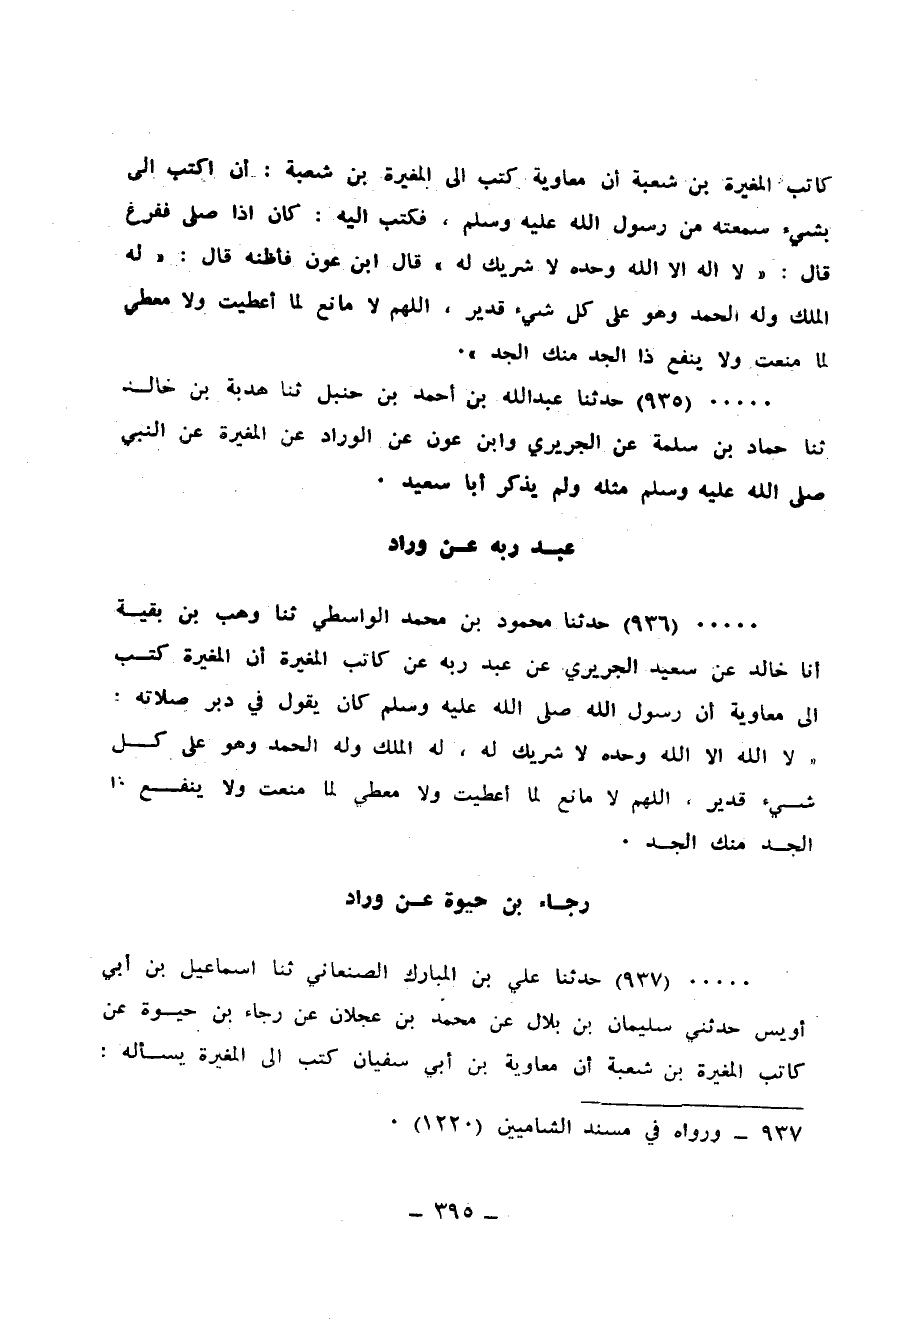 كاتب المغيرة بن شعبة أن معاوية كتب الى المغيرة بن شعبة : أن اكتب الى
بشيء سمعته من رسول الله عليه وسلم ، فكتب اليه : كان اذا صلى ففرغ
قال : « لا اله الا الله وحده لا شريك له » قال ابن عون فأظنه قال : « له
الملك وله الحمد وهو على كل شيء قدير ، اللهم لا مانع لما أعطيت ولا معطي
لما منعت ولا ينفع ذا الجد منك الجد » .
. . . . . (٩٣٥) حدثنا عبدالله بن أحمد بن حنبل ثنا هدبة بن خالد
ثنا حماد بن سلمة عن الجريري وابن عون عن الوراد عن المغيرة عن النبي
صلى الله عليه وسلم مثله ولم يذكر أبا سعيد .
عبد ربه عن وراد
. . . . . (٩٣٦) حدثنا محمود بن محمد الواسطي ثنا وهب بن بقية
أنا خالد عن سعيد الجريري عن عبد ربه عن كاتب المغيرة أن المغيرة كتب
الى معاوية أن رسول الله صلى الله عليه وسلم كان يقول في دبر صلاته :
« لا الله الا الله وحده لا شريك له ، له الملك وله الحمد وهو على كل
شيء قدير ، اللهم لا مانع لما أعطيت ولا معطي لما منعت ولا ينفع ذا
الجد منك الجد .
رجاء بن حيوة عن وراد
. . . . . (٩٣٧) حدثنا علي بن المبارك الصنعاني ثنا اسماعيل بن أبي
أويس حدثني سليمان بن بلال عن محمد بن عجلان عن رجاء بن حيوة عن
كاتب المغيرة بن شعبة أن معاوية بن أبي سفيان كتب الى المغيرة يسأله :
٩٣٧ ـ ورواه في مسند الشاميين (١٢٢٠) .
ـ ٣٩٥ ـ